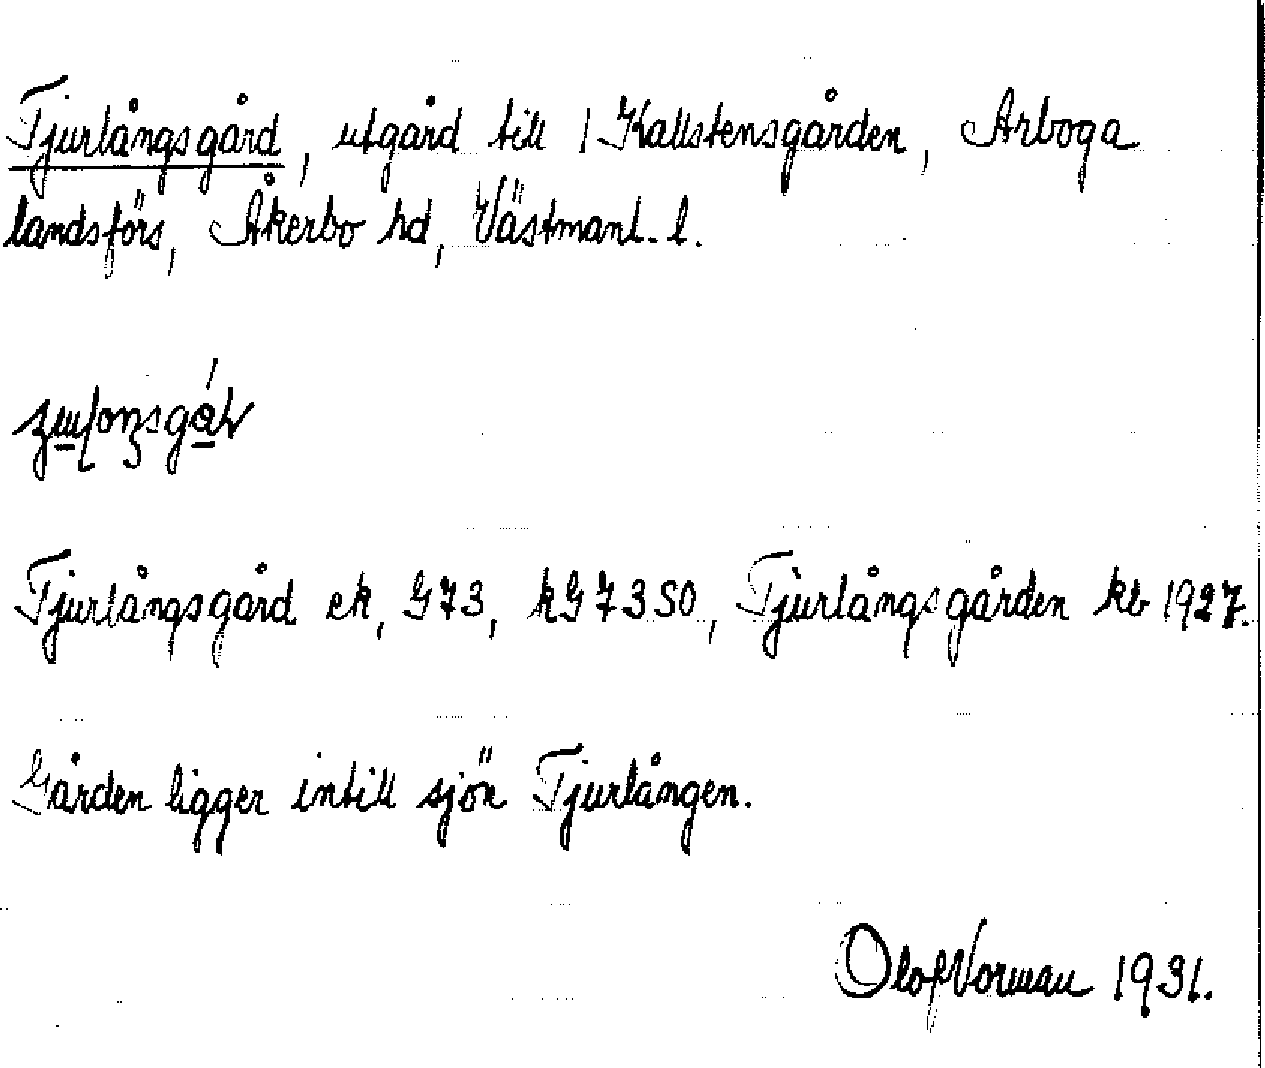 Tjurlångsgård, utgård till 1 Kallstensgården, Arboga
landsförs, Åkerbo hd, Västmanl. l.
Tjurlångsgård ek, G73, kG73SO, Tjurlångsgården kb 1927.
Gården ligger intill sjön Tjurlången.
Olof Vorman 1931.